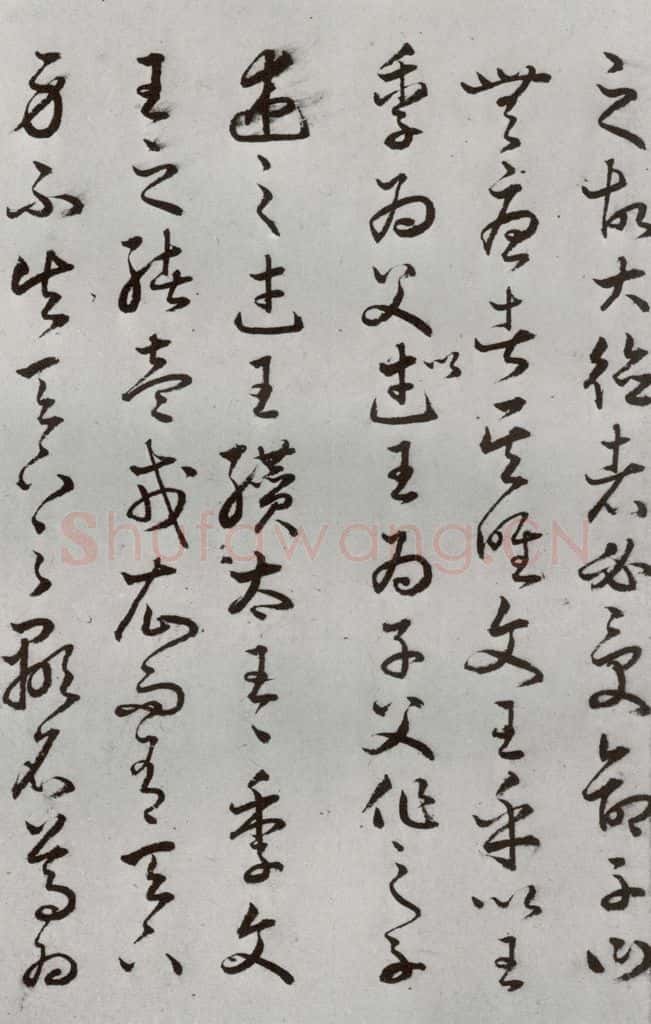 之故大德者必受命子曰
無憂者其唯文王乎以王
季為父以武王為子父作之子
述之武王纘太王〻季文
王之緒壹戎衣而有天下
身不失天下之顯名尊為
Shufawang.CN